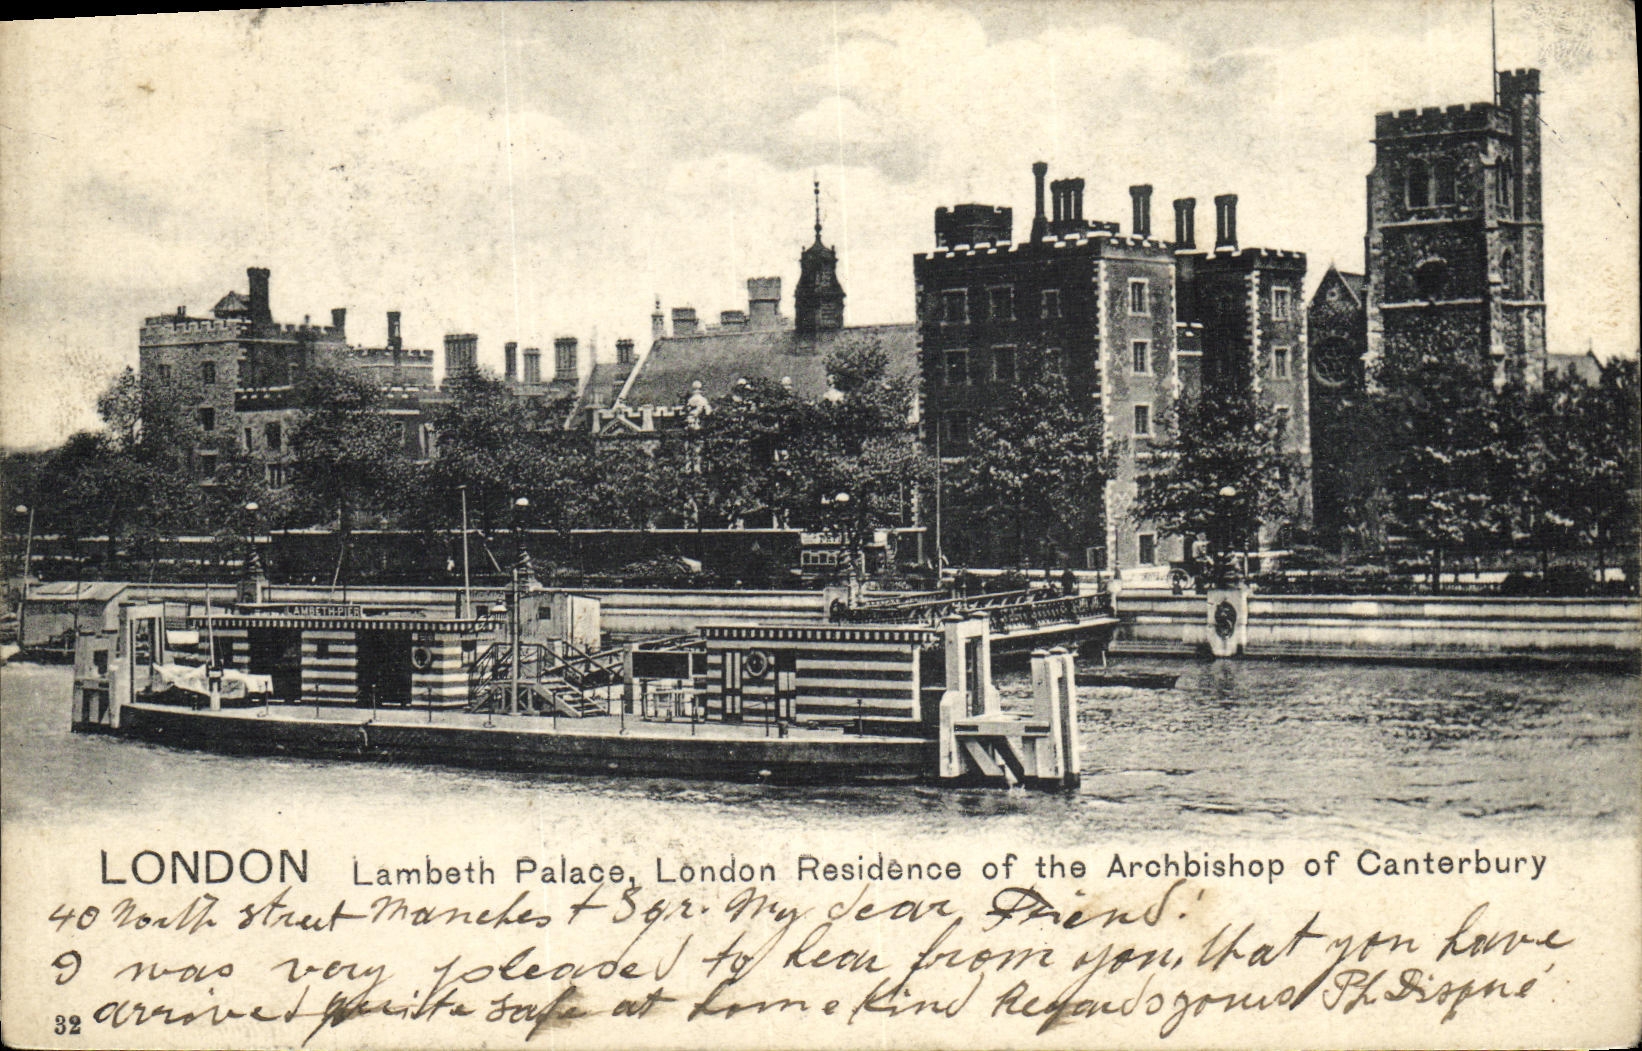 LAMBETH-PIER
LONDON Lambeth Palace, London Residence of the Archbishop of Canterbury
40 North street Manches t Sqr. My dear Friend!
I was very pleased to hear from you, that you have
arrived quite safe at home kind Regards yours Ph. Disqué
32